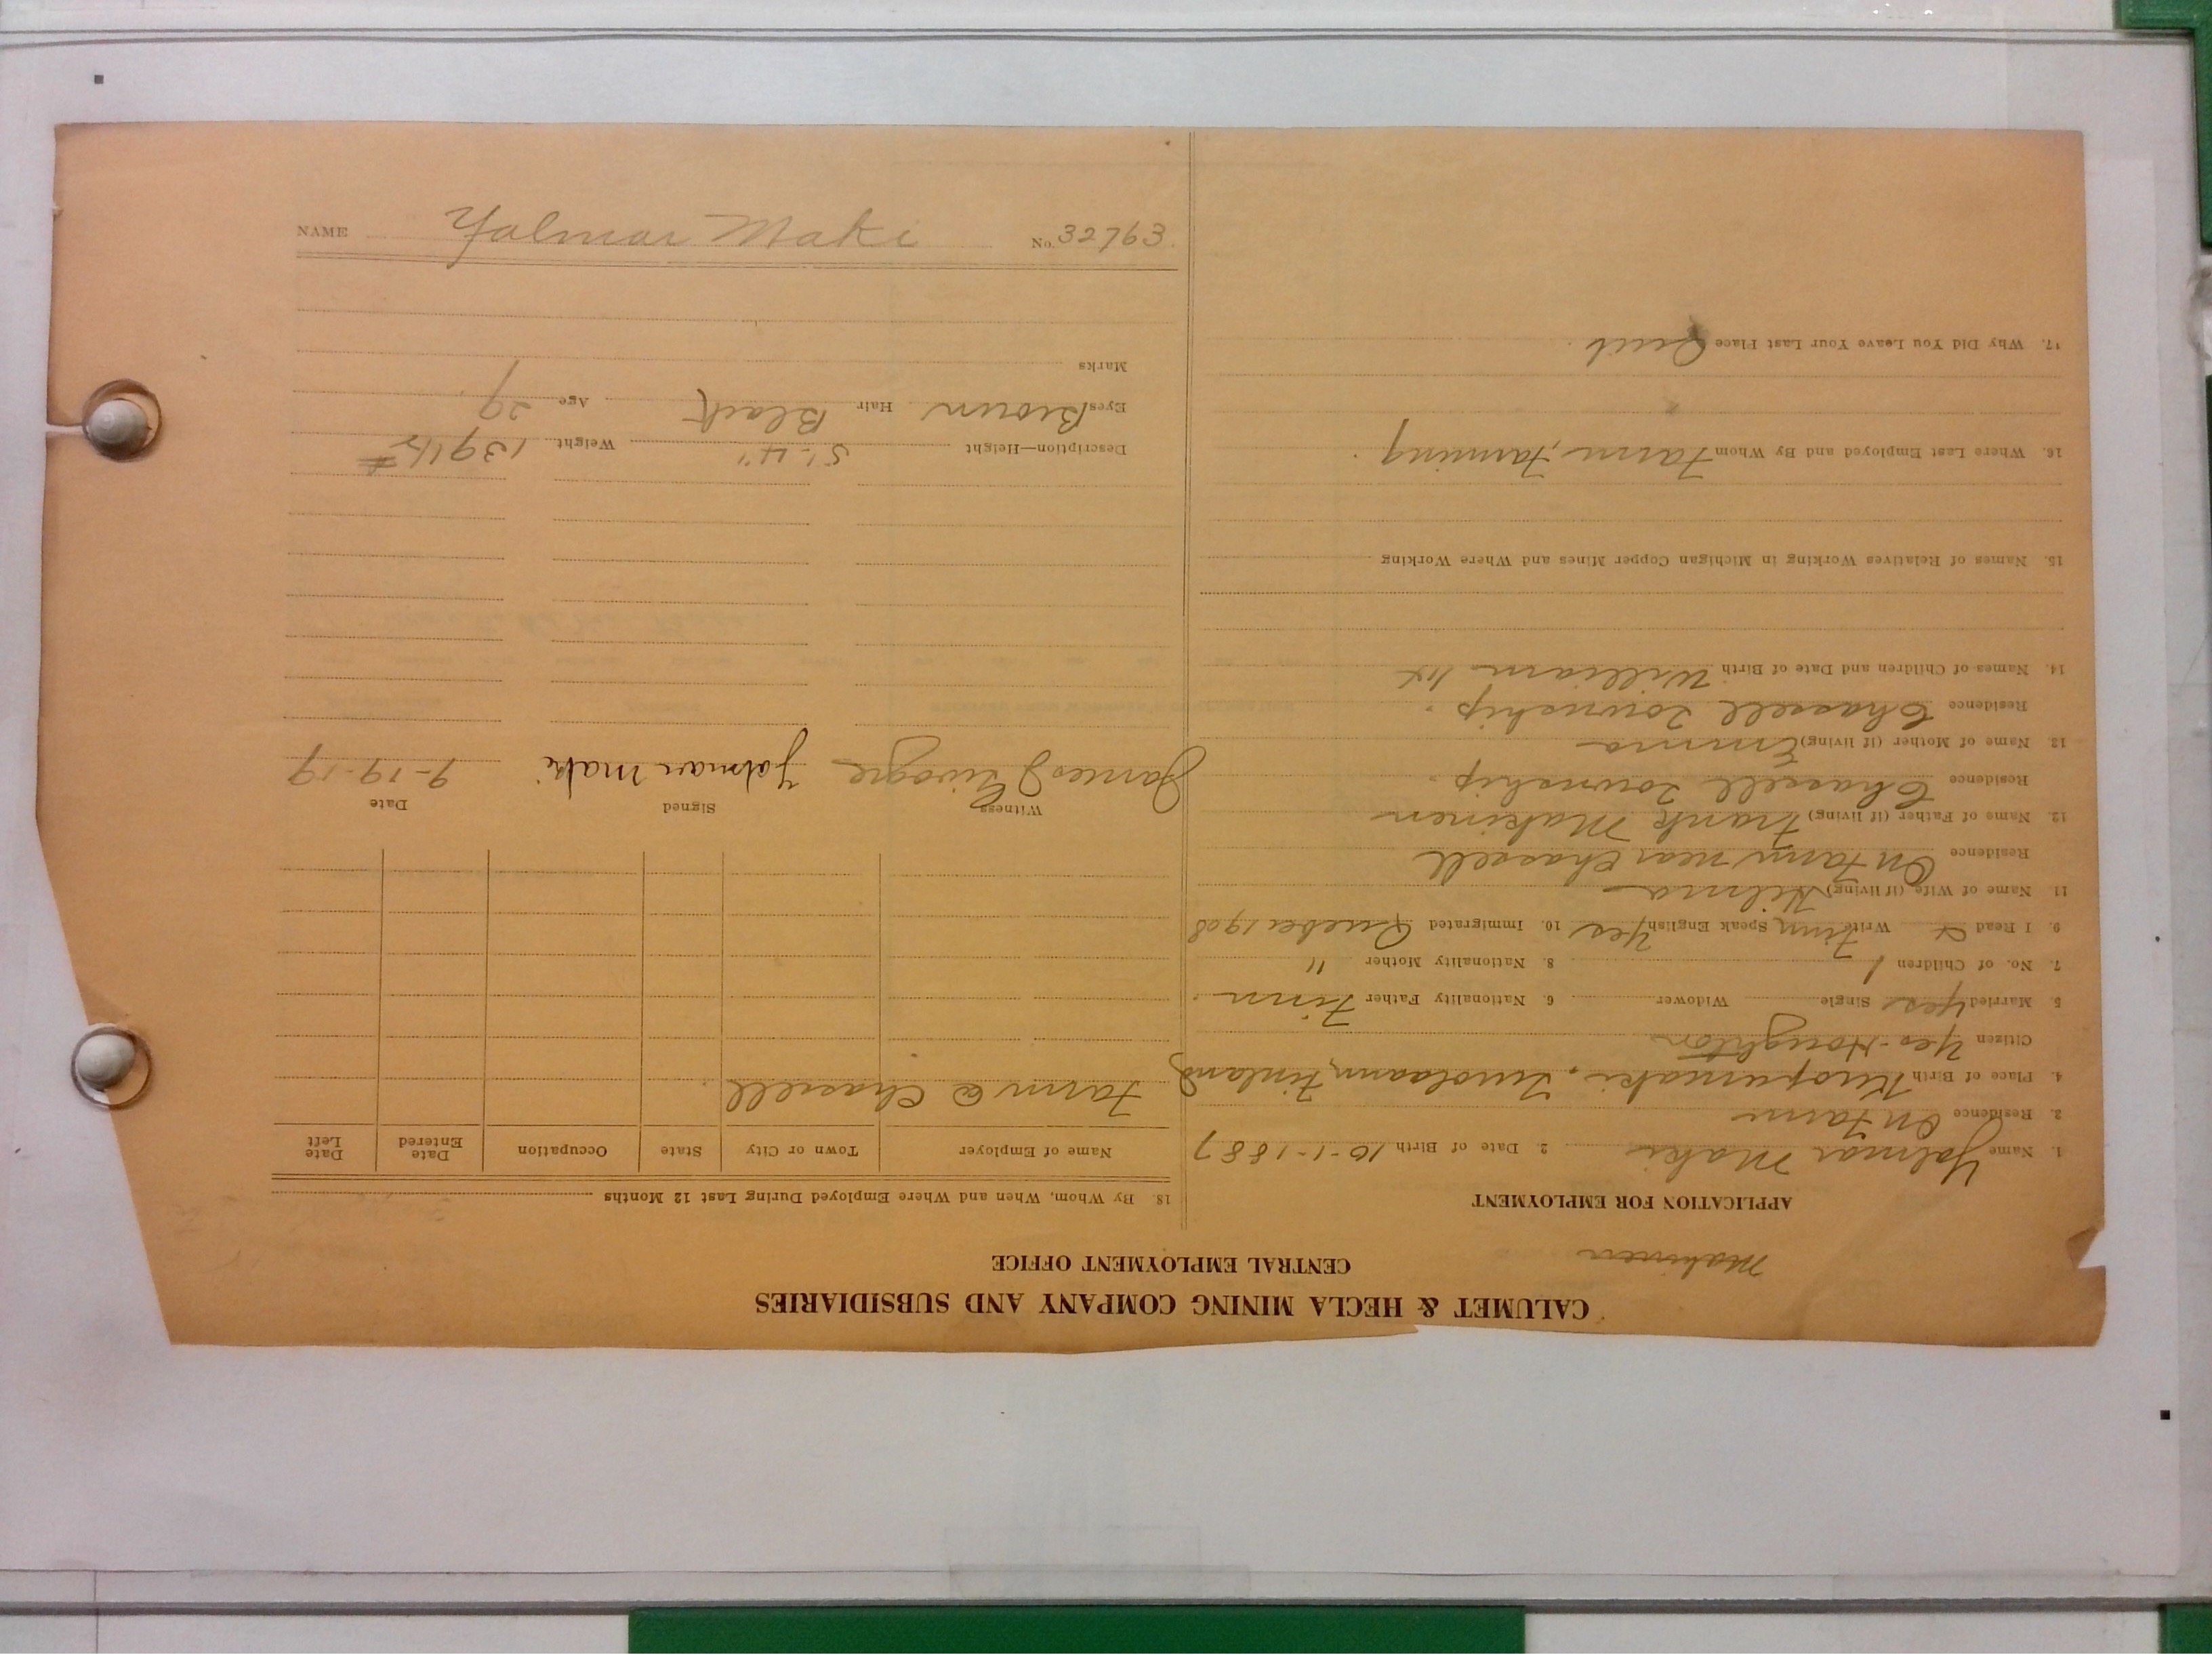 CALUMET & HECLA MINING COMPANY AND SUBSIDIARIES
CENTRAL EMPLOYMENT OFFICE
Makinen
APPLICATION FOR EMPLOYMENT
1. Name Yalmar Maki 2. Date of Birth 10-1-1887
3. Residence On Farm
4. Place of Birth Finland
Citizen Yes-Houghton
5. Married Yes Single Widower 6. Nationality Father Finn
7. No. of Children 1 8. Nationality Mother "
9. I Read & Write Finn Speak English Yes 10. Immigrated Quebec 1908
11. Name of Wife (if living) Hilma
Residence On Farm near Chassell
12. Name of Father (if living) Frank Makinen
Residence Chassell Township.
13. Name of Mother (if living) Emma
Residence Chassell Township.
14. Names of Children and Date of Birth William
15. Names of Relatives Working in Michigan Copper Mines and Where Working
16. Where Last Employed and By Whom Farm, Farming.
17. Why Did You Leave Your Last Place Quit.
18. By Whom, When and Where Employed During Last 12 Months
Name of Employer Town or City State Occupation Date Entered Date Left
Farm @ Chassell.
Witness Signed Date
James Yalmar Maki 9-19-17
Description—Height 5'-4" Weight 139 1/2 #
Eyes Brown Hair Black Age 29
Marks
NAME Yalmar Maki No. 32763.